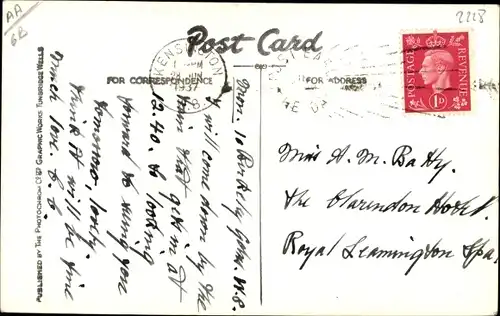 AA
68
2228
Post Card
FOR CORRESPONDENCE
FOR ADDRESS
KENSINGTON
1937
W.8.
POSTAGE
REVENUE
1D
Mon. 10 Berkeley Gdns. W.8.
I will come down by the
train that gets in at
2.40. So looking
forward to seeing you
tomorrow, lovely.
think it will be fine
much love.
Miss A. M. Batty.
The Clarendon Hotel.
Royal Leamington Spa.
PUBLISHED BY THE PHOTOCHROM CO LTD GRAPHIC WORKS TUNBRIDGE WELLS